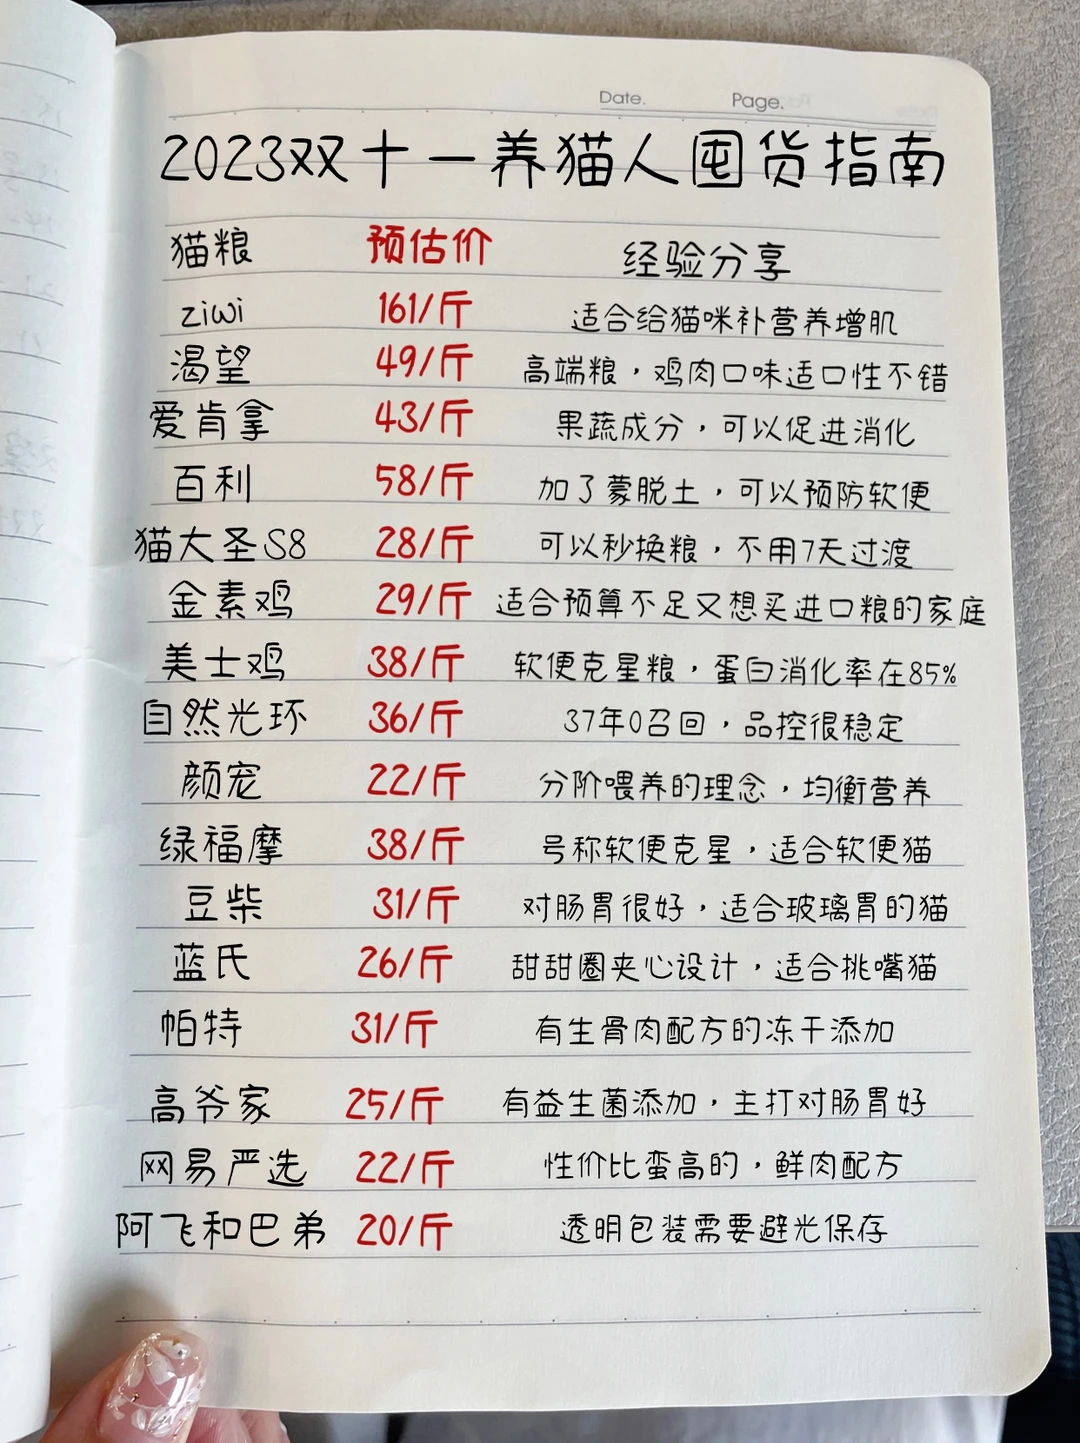 Date. Page.
2023双十一养猫人囤货指南
猫粮 预估价 经验分享
ziwi 161/斤 适合给猫咪补营养增肌
渴望 49/斤 高端粮，鸡肉口味适口性不错
爱肯拿 43/斤 果蔬成分，可以促进消化
百利 58/斤 加了蒙脱土，可以预防软便
猫大圣S8 28/斤 可以秒换粮，不用7天过渡
金素鸡 29/斤 适合预算不足又想买进口粮的家庭
美士鸡 38/斤 软便克星粮，蛋白消化率在85%
自然光环 36/斤 37年0召回，品控很稳定
颜宠 22/斤 分阶喂养的理念，均衡营养
绿福摩 38/斤 号称软便克星，适合软便猫
豆柴 31/斤 对肠胃很好，适合玻璃胃的猫
蓝氏 26/斤 甜甜圈夹心设计，适合挑嘴猫
帕特 31/斤 有生骨肉配方的冻干添加
高爷家 25/斤 有益生菌添加，主打对肠胃好
网易严选 22/斤 性价比蛮高的，鲜肉配方
阿飞和巴弟 20/斤 透明包装需要避光保存